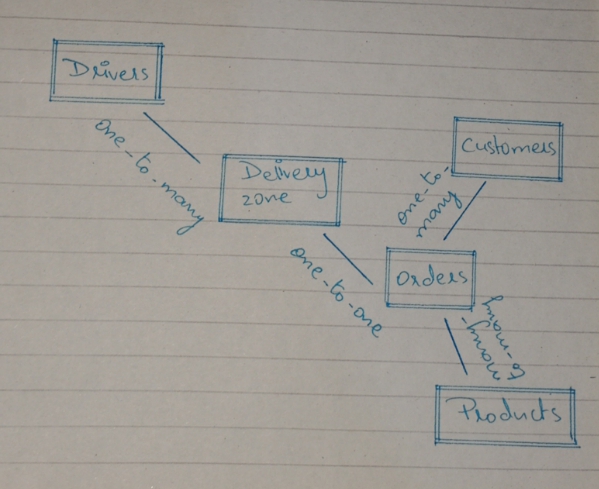 Drivers
one-to-many
Delivery
zone
Customers
one-to-
many
one-to-one
Orders
many-
to-many
Products